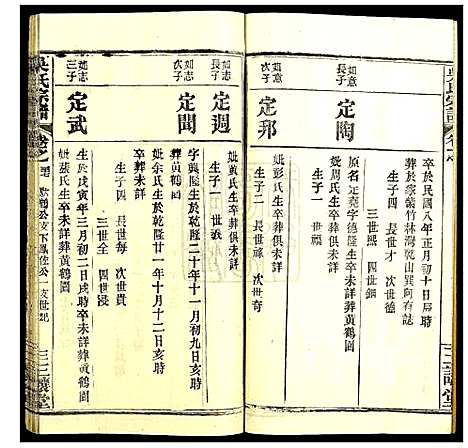 卒於民國八年正月初十日辰時
葬於家紫竹林灣乾山巽向有誌
生子四 長世才 次世德
三世熙 四世鈿
如意
長子
定陶
原名定堯字德隆生卒未詳葬黃鶴園
妣周氏生卒葬俱未詳
生子一 世禎
如意
次子
定邦
妣彭氏生卒葬俱未詳
生子二 長世福 次世奇
如志
長子
定週
妣黃氏生卒葬俱未詳
生子一 世張
如志
次子
定聞
字興隆生於乾隆二十年十一月初九日亥時
葬黃鶴園
妣余氏生於乾隆廿一年十月十二日亥時
卒葬未詳
生子四 長世每 次世貴
三世全 四世浸
如志
三子
定武
生於戊寅年三月初二日戌時卒未詳葬黃鶴園
妣張氏生卒未詳葬黃鶴園
吳氏宗譜
三讓堂